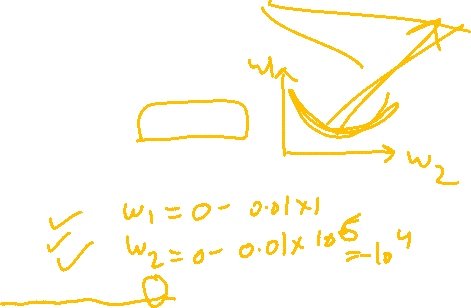 w1
w2
w1 = 0 - 0.01x1
w2 = 0 - 0.01x10^6
= -10^4